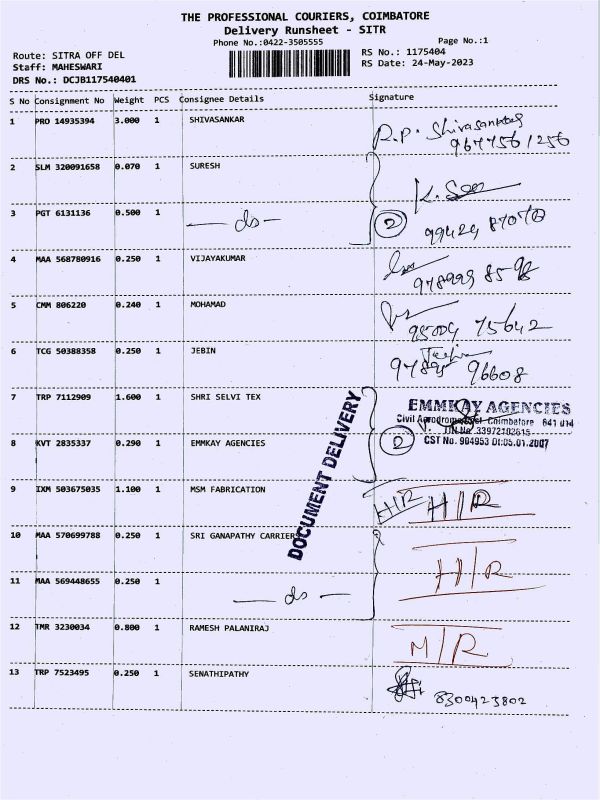 THE PROFESSIONAL COURIERS, COIMBATORE
Delivery Runsheet - SITR
Phone No.:0422-3505555 Page No.:1
Route: SITRA OFF DEL RS No.: 1175404
Staff: MAHESWARI RS Date: 24-May-2023
DRS No.: DCJB117540401
S No Consignment No Weight PCS Consignee Details Signature
1 PRO 14935394 3.000 1 SHIVASANKAR R.P. Shivasankar
9677561256
2 SLM 320091658 0.070 1 SURESH
3 PGT 6131136 0.500 1 — ds — 2
4 MAA 568780916 0.250 1 VIJAYAKUMAR
5 CMM 806220 0.240 1 MOHAMAD
95009 75642
6 TCG 50388358 0.250 1 JEBIN
96608
7 TRP 7112909 1.600 1 SHRI SELVI TEX EMMKAY AGENCIES
Civil Aerodrome Coimbatore 641 014
8 KVT 2835337 0.290 1 EMMKAY AGENCIES 2
CST No. 904953 Dt:05.01.2007
DOCUMENT DELIVERY
9 IXM 503675035 1.100 1 MSM FABRICATION H/R H/R
10 MAA 570699788 0.250 1 SRI GANAPATHY CARRIER
11 MAA 569448655 0.250 1 — ds — H/R
12 TMR 3230034 0.800 1 RAMESH PALANIRAJ M/R
13 TRP 7523495 0.250 1 SENATHIPATHY
8300423802